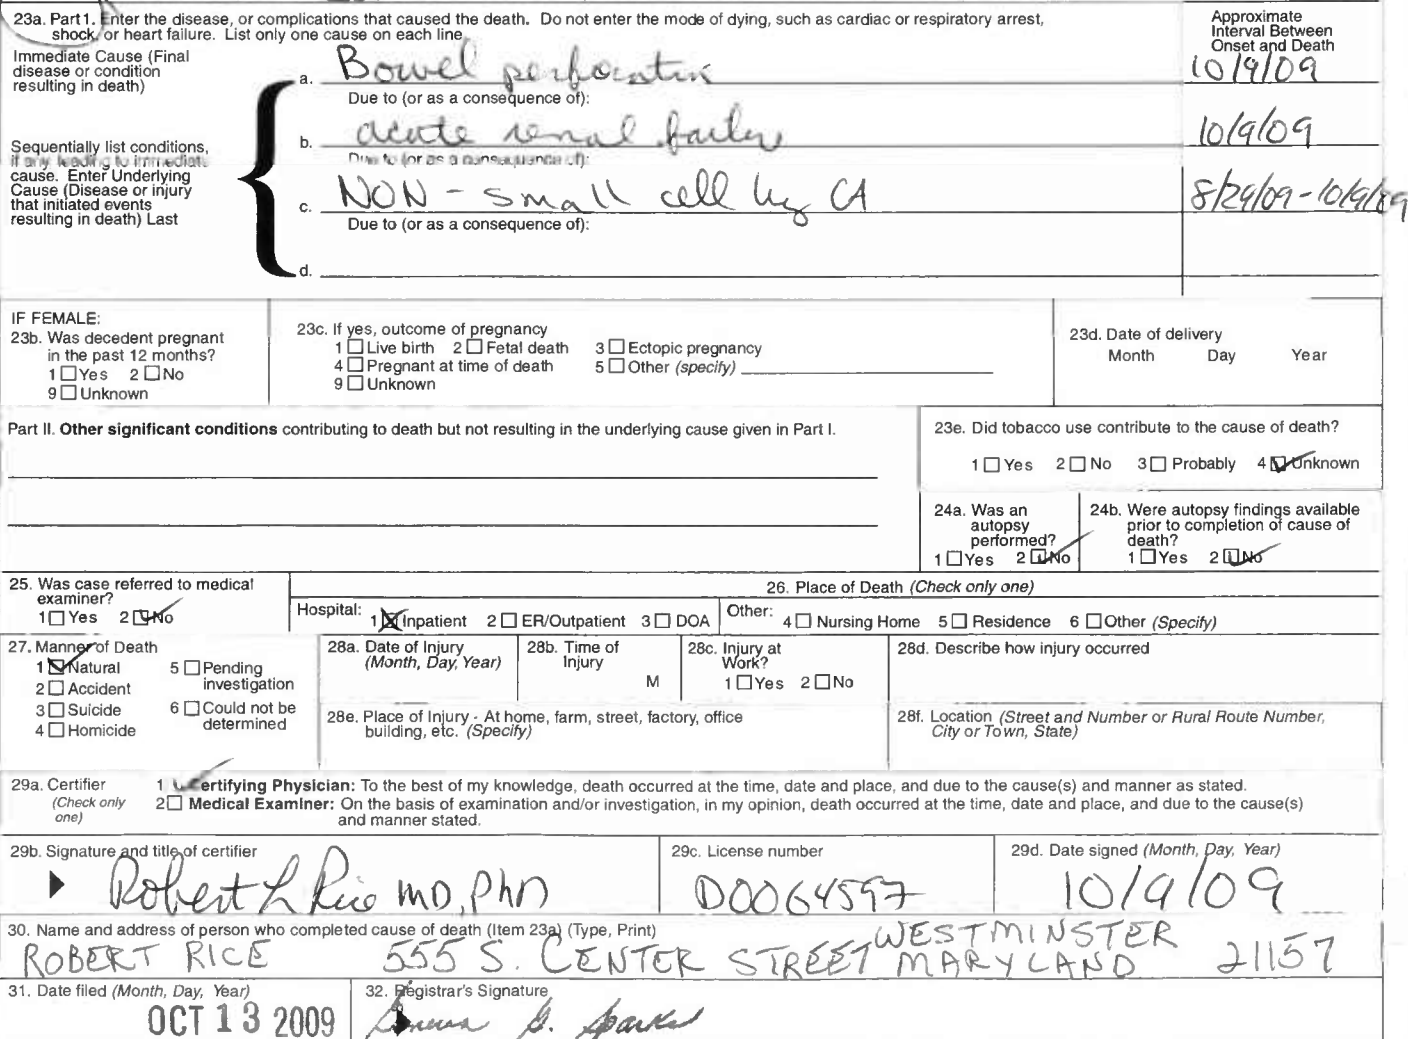 23a. Part 1. Enter the disease, or complications that caused the death. Do not enter the mode of dying, such as cardiac or respiratory arrest,
shock, or heart failure. List only one cause on each line
Approximate
Interval Between
Onset and Death
Immediate Cause (Final
disease or condition
resulting in death)
a. Bowel perforation 10/9/09
Due to (or as a consequence of):
b. acute renal failure 10/9/09
Sequentially list conditions,
if any leading to immediate
cause. Enter Underlying
Cause (Disease or injury
that initiated events
resulting in death) Last
Due to (or as a consequence of):
c. NON-small cell lung CA 8/29/09-10/9/09
Due to (or as a consequence of):
d.
IF FEMALE:
23b. Was decedent pregnant
in the past 12 months?
1 Yes 2 No
9 Unknown
23c. If yes, outcome of pregnancy
1 Live birth 2 Fetal death 3 Ectopic pregnancy
4 Pregnant at time of death 5 Other (specify)
9 Unknown
23d. Date of delivery
Month Day Year
Part II. Other significant conditions contributing to death but not resulting in the underlying cause given in Part I.
23e. Did tobacco use contribute to the cause of death?
1 Yes 2 No 3 Probably 4 Unknown
24a. Was an
autopsy
performed?
1 Yes 2 No
24b. Were autopsy findings available
prior to completion of cause of
death?
1 Yes 2 No
25. Was case referred to medical
examiner?
1 Yes 2 No
26. Place of Death (Check only one)
Hospital: 1 Inpatient 2 ER/Outpatient 3 DOA Other: 4 Nursing Home 5 Residence 6 Other (Specify)
27. Manner of Death
1 Natural 5 Pending
investigation
2 Accident
3 Suicide 6 Could not be
determined
4 Homicide
28a. Date of Injury
(Month, Day, Year)
28b. Time of
Injury
M
28c. Injury at
Work?
1 Yes 2 No
28d. Describe how injury occurred
28e. Place of Injury - At home, farm, street, factory, office
building, etc. (Specify)
28f. Location (Street and Number or Rural Route Number,
City or Town, State)
29a. Certifier
(Check only
one)
1 Certifying Physician: To the best of my knowledge, death occurred at the time, date and place, and due to the cause(s) and manner as stated.
2 Medical Examiner: On the basis of examination and/or investigation, in my opinion, death occurred at the time, date and place, and due to the cause(s)
and manner stated.
29b. Signature and title of certifier
Robert L Rice MD, PhD
29c. License number
D0064597
29d. Date signed (Month, Day, Year)
10/9/09
30. Name and address of person who completed cause of death (Item 23a) (Type, Print)
ROBERT RICE 555 S. CENTER STREET WESTMINSTER
MARYLAND 21157
31. Date filed (Month, Day, Year)
OCT 13 2009
32. Registrar's Signature
G. Sparks